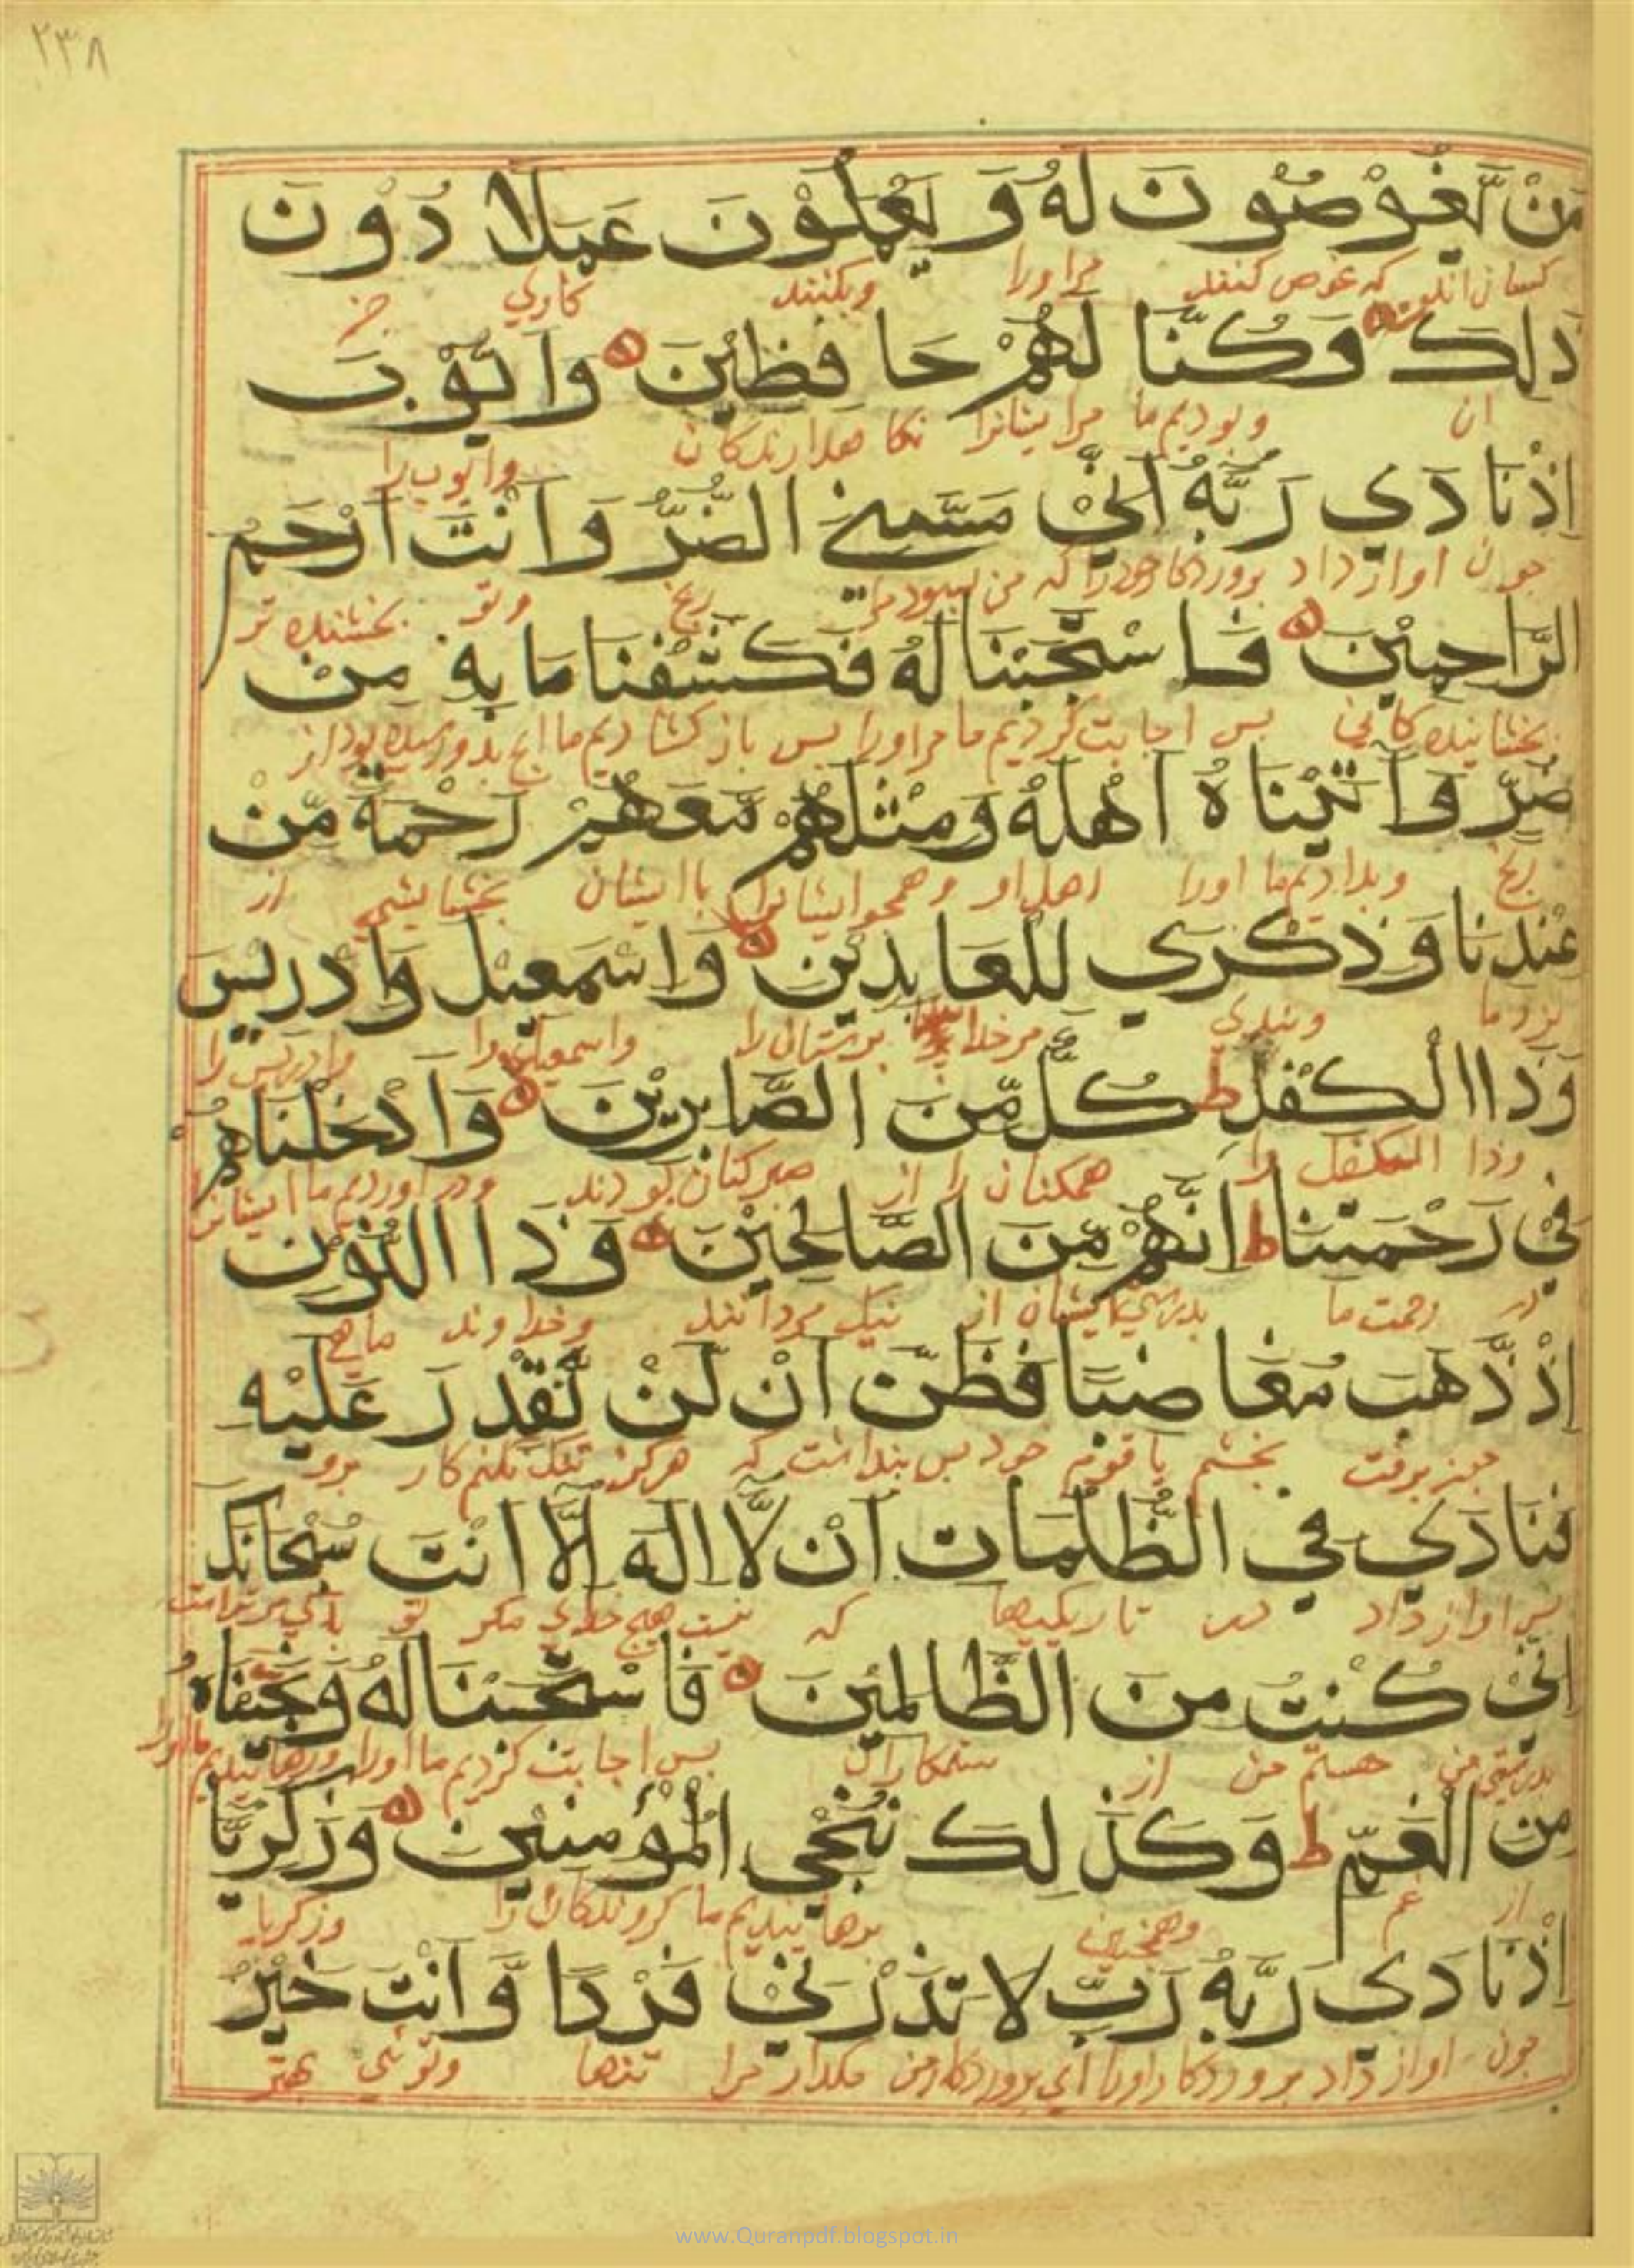 ٢٣٨
مَنْ يَّغُوْصُوْنَ لَهُ وَ يَعْمَلُوْنَ عَمَلًا دُوْنَ
كه غوص كنند مراورا وبكنند كاري جز
ذلِكَ وَكُنَّا لَهُمْ حَافِظِيْنَ وَاَيُّوْبَ
ان وبوديم ما مرايشانرا نكاهدارندكان وايوب را
اِذْنَادَي رَبَّهُ اَنِّيْ مَسَّنِيَ الضُّرُّ وَاَنْتَ اَرْحَمُ
جون اواز داد بروردكارخودرا كه من رنج وتو بخشنده تر
الرَّاحِمِيْنَ فَاسْتَجَبْنَا لَهُ فَكَشَفْنَا مَا بِهِ مِنْ
بس اجابت كرديم ما مراورا بس باز كشاديم ما از
ضُرٍّ وَاٰتَيْنَاهُ اَهْلَهُ وَمِثْلَهُمْ مَّعَهُمْ رَحْمَةً مِّنْ
رنج وبداديم ما اورا اهل او باايشان بخشايشي از
عِنْدِنَا وَذِكْرَي لِلْعَابِدِيْنَ وَاِسْمَعِيْلَ وَاِدْرِيْسَ
نزد ما وبندي واسمعيل را وادريس را
وَذَا الْكِفْلِ ط كُلٌّ مِّنَ الصَّابِرِيْنَ وَاَدْخَلْنَاهُمْ
وذا الكفل را همكنان را از صبركنان بودند ودراورديم ما ايشانرا
فِيْ رَحْمَتِنَا ط اِنَّهُمْ مِّنَ الصَّالِحِيْنَ وَذَا النُّوْنِ
در رحمت ما بدرستي ايشان از نيك مردانند وخداوند ماهي
اِذْ ذَّهَبَ مُغَاضِبًا فَظَنَّ اَنْ لَّنْ نَّقْدِرَ عَلَيْهِ
بخشم باقوم خود بس بنداشت كه هركز تنك نكنم كار برو
فَنَادَي فِي الظُّلُمَاتِ اَنْ لَّا اِلٰهَ اِلَّا اَنْتَ سُبْحَانَكَ
بس اواز داد در تاريكيها كه نيست هيچ خداي مكر تو باكي مرتراست
اِنِّيْ كُنْتُ مِنَ الظَّالِمِيْنَ فَاسْتَجَبْنَا لَهُ وَنَجَّيْنَاهُ
بدرستي من هستم من از ستمكاران بس اجابت كرديم ما اورا ورهانيديم ما اورا
مِنَ الْغَمِّ ط وَكَذٰلِكَ نُنْجِي الْمُؤْمِنِيْنَ وَزَكَرِيَّا
از غم وهمچنين برهانيديم ما كروندكان را وزكريا
اِذْنَادَي رَبَّهُ رَبِّ لَا تَذَرْنِيْ فَرْدًا وَّاَنْتَ خَيْرُ
جون اواز داد بروردكار اورا اي بروردكارمن مكذار مرا تنها وتوئي بهتر
www.Quranpdf.blogspot.in